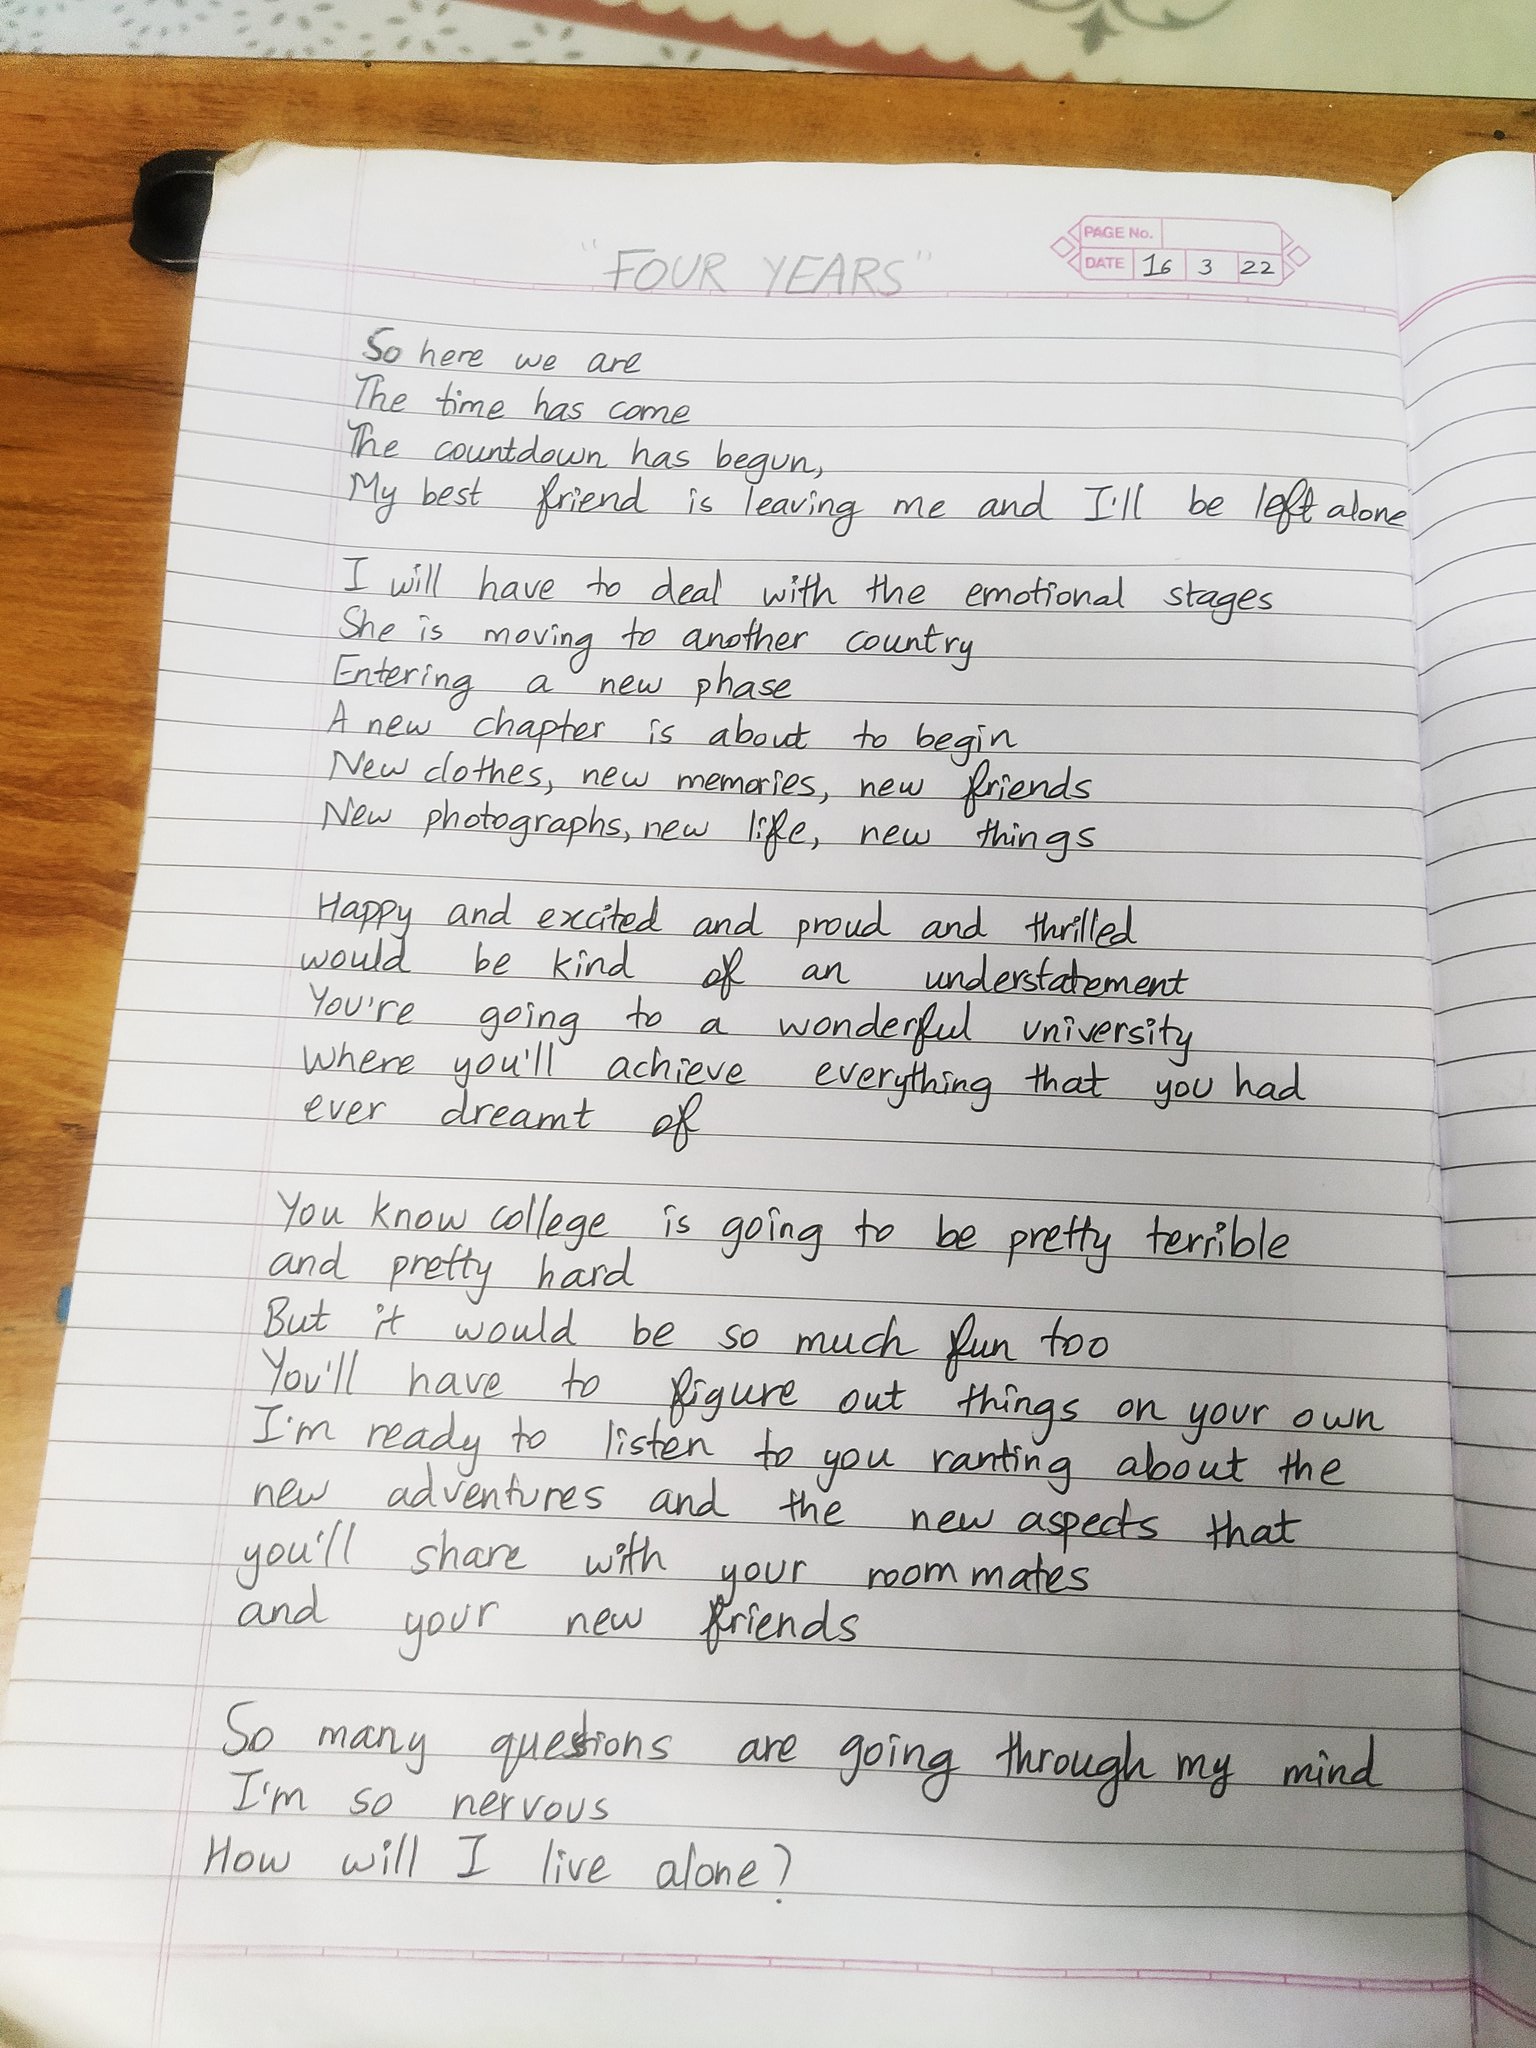 "FOUR YEARS"
PAGE No.
DATE 16 3 22
So here we are
The time has come
The countdown has begun,
My best friend is leaving me and I'll be left alone
I will have to deal with the emotional stages
She is moving to another country
Entering a new phase
A new chapter is about to begin
New clothes, new memories, new friends
New photographs, new life, new things
Happy and excited and proud and thrilled
would be kind of an understatement
You're going to a wonderful university
where you'll achieve everything that you had
ever dreamt of
You know college is going to be pretty terrible
and pretty hard
But it would be so much fun too
You'll have to figure out things on your own
I'm ready to listen to you ranting about the
new adventures and the new aspects that
you'll share with your roommates
and your new friends
So many questions are going through my mind
I'm so nervous
How will I live alone?